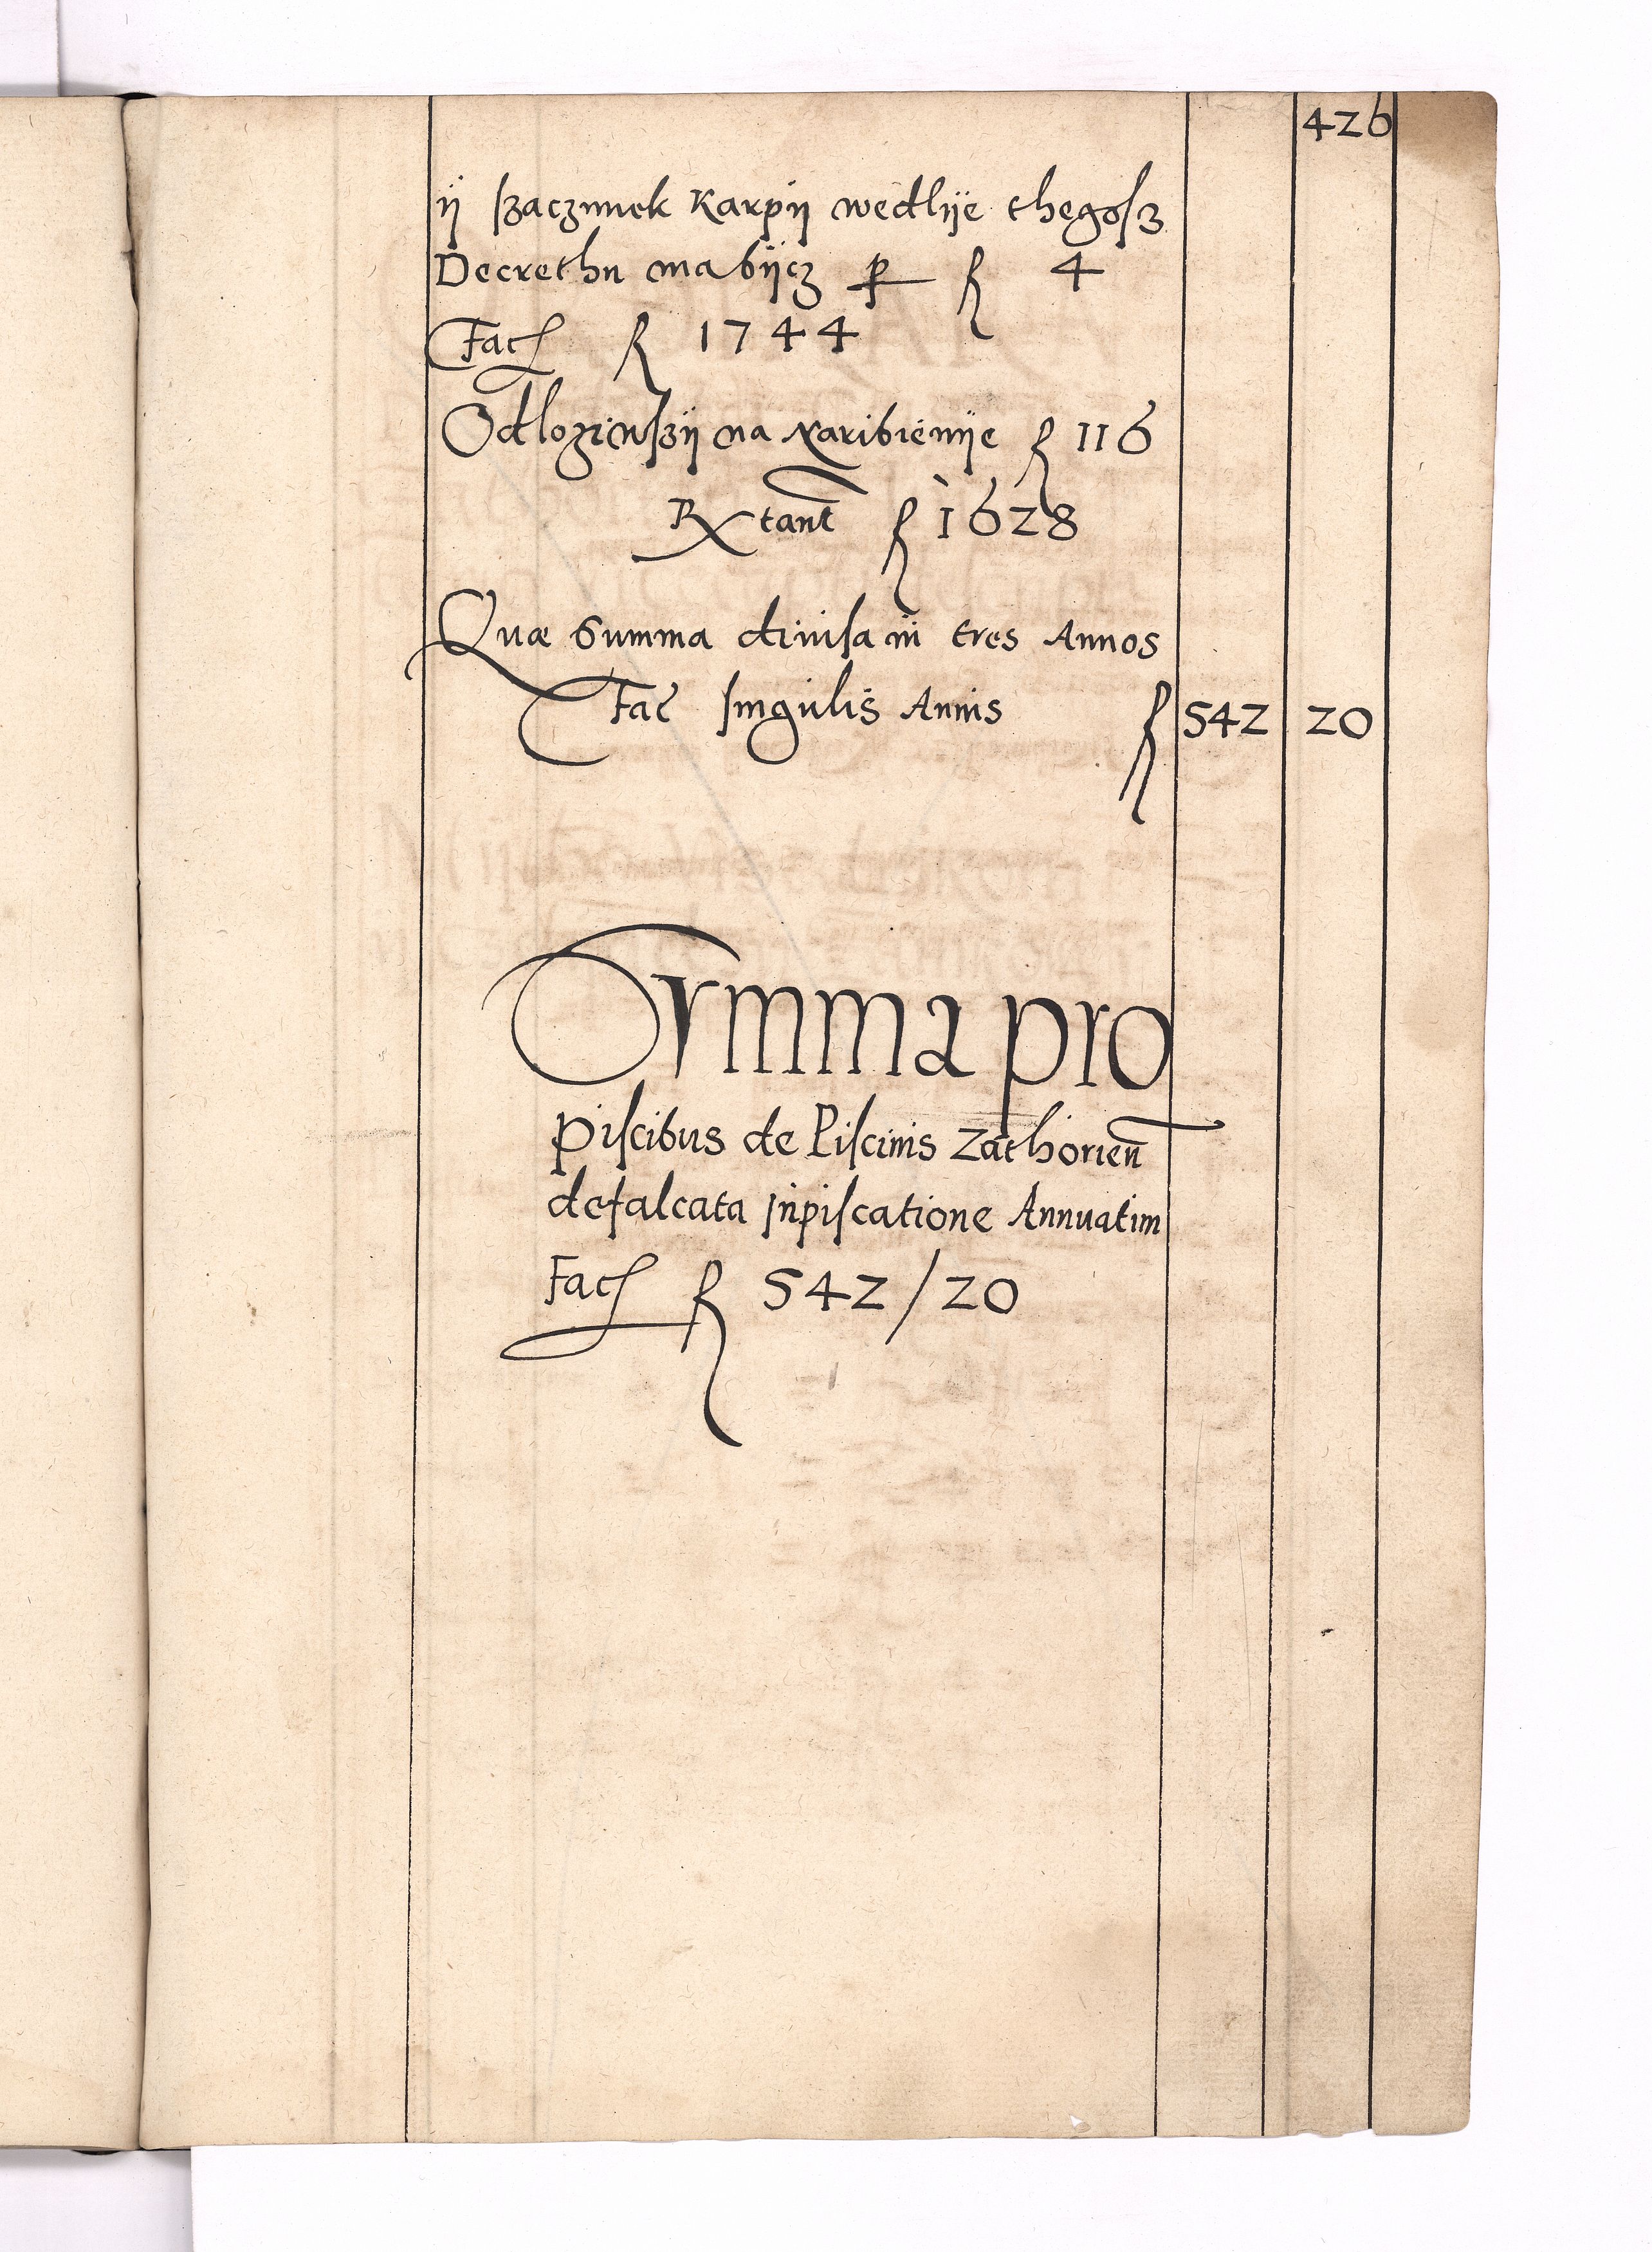 426
ÿ szaczunek Karpÿ wedlÿe thegosz
Decrethu ma bÿcz per fl 4
Fac fl 1744
Odlozÿwszÿ na Naribienÿe fl 116
Rextant fl 1628
Quæ Summa diuisa in tres Annos
Fac singulis Annis fl 542 20
Summa pro
Piscibus de Piscinis Zathorien
defalcata Inpiscatione Annuatim
Fac fl 542/20